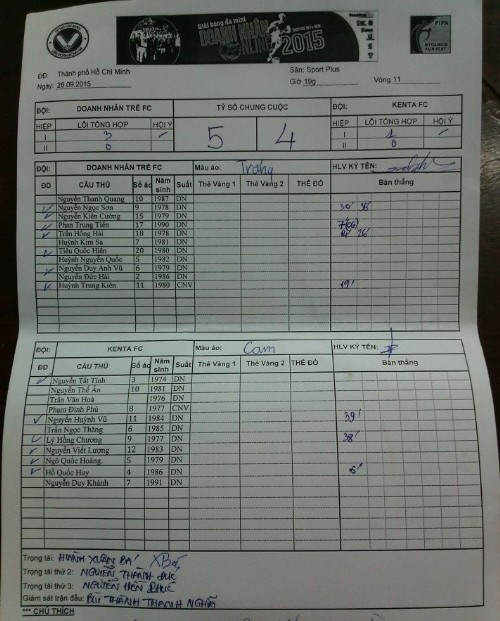 Giải bóng đá mini
DOANH NHÂN
ONLINE 2015
FIFA
MY GAME IS
FAIR PLAY
ĐĐ: Thành phố Hồ Chí Minh
Sân: Sport Plus
Ngày: 26.09.2015
Giờ 19g
Vòng 11
ĐỘI: DOANH NHÂN TRẺ FC TỶ SỐ CHUNG CUỘC ĐỘI: KENTA FC
HIỆP LỖI TỔNG HỢP HỘI Ý 5 4 HIỆP LỖI TỔNG HỢP HỘI Ý
I 3 I 1
II 0 II 0
ĐỘI: DOANH NHÂN TRẺ FC Màu áo: Trắng HLV KÝ TÊN:
ĐD CẦU THỦ Số áo Năm sinh Suất Thẻ Vàng 1 Thẻ Vàng 2 THẺ ĐỎ Bàn thắng
Nguyễn Thanh Quang 10 1987 DN
Nguyễn Ngọc Sơn 9 1978 DN
Nguyễn Kiên Cường 15 1979 DN
Phan Trung Tiến 17 1990 DN
Trần Hồng Hải 18 1978 DN
Huỳnh Kim Sa 7 1981 DN
Tiêu Quốc Hiền 20 1980 DN
Huỳnh Nguyên Quốc 5 1982 DN
Nguyễn Duy Anh Vũ 6 1979 DN
Nguyễn Đức Hải 2 1986 DN
Huỳnh Trung Kiên 11 1980 CNV 19'
ĐỘI: KENTA FC Màu áo: Cam HLV KÝ TÊN:
ĐD CẦU THỦ Số áo Năm sinh Suất Thẻ Vàng 1 Thẻ Vàng 2 THẺ ĐỎ Bàn thắng
Nguyễn Tất Tình 3 1974 DN
Nguyễn Thế Ân 10 1981 DN
Trần Văn Hoà 1976 DN
Phạm Đình Phú 8 1977 CNV
Nguyễn Huỳnh Vũ 11 1984 DN 39'
Trần Ngọc Thăng 6 1985 DN
Lý Hồng Chương 9 1977 DN 38'
Nguyễn Viết Lượng 12 1983 DN
Ngô Quốc Hoàng 5 1979 DN
Hồ Quốc Huy 4 1986 DN
Nguyễn Duy Khánh 7 1991 DN
Trọng tài: HUỲNH XUÂN BÁ
Trọng tài thứ 2: NGUYỄN THÀNH ĐỨC
Trọng tài thứ 3: NGUYỄN HIỀN PHÚC
Giám sát trận đấu: BÙI THÀNH THANH NGHĨA
*** CHÚ THÍCH